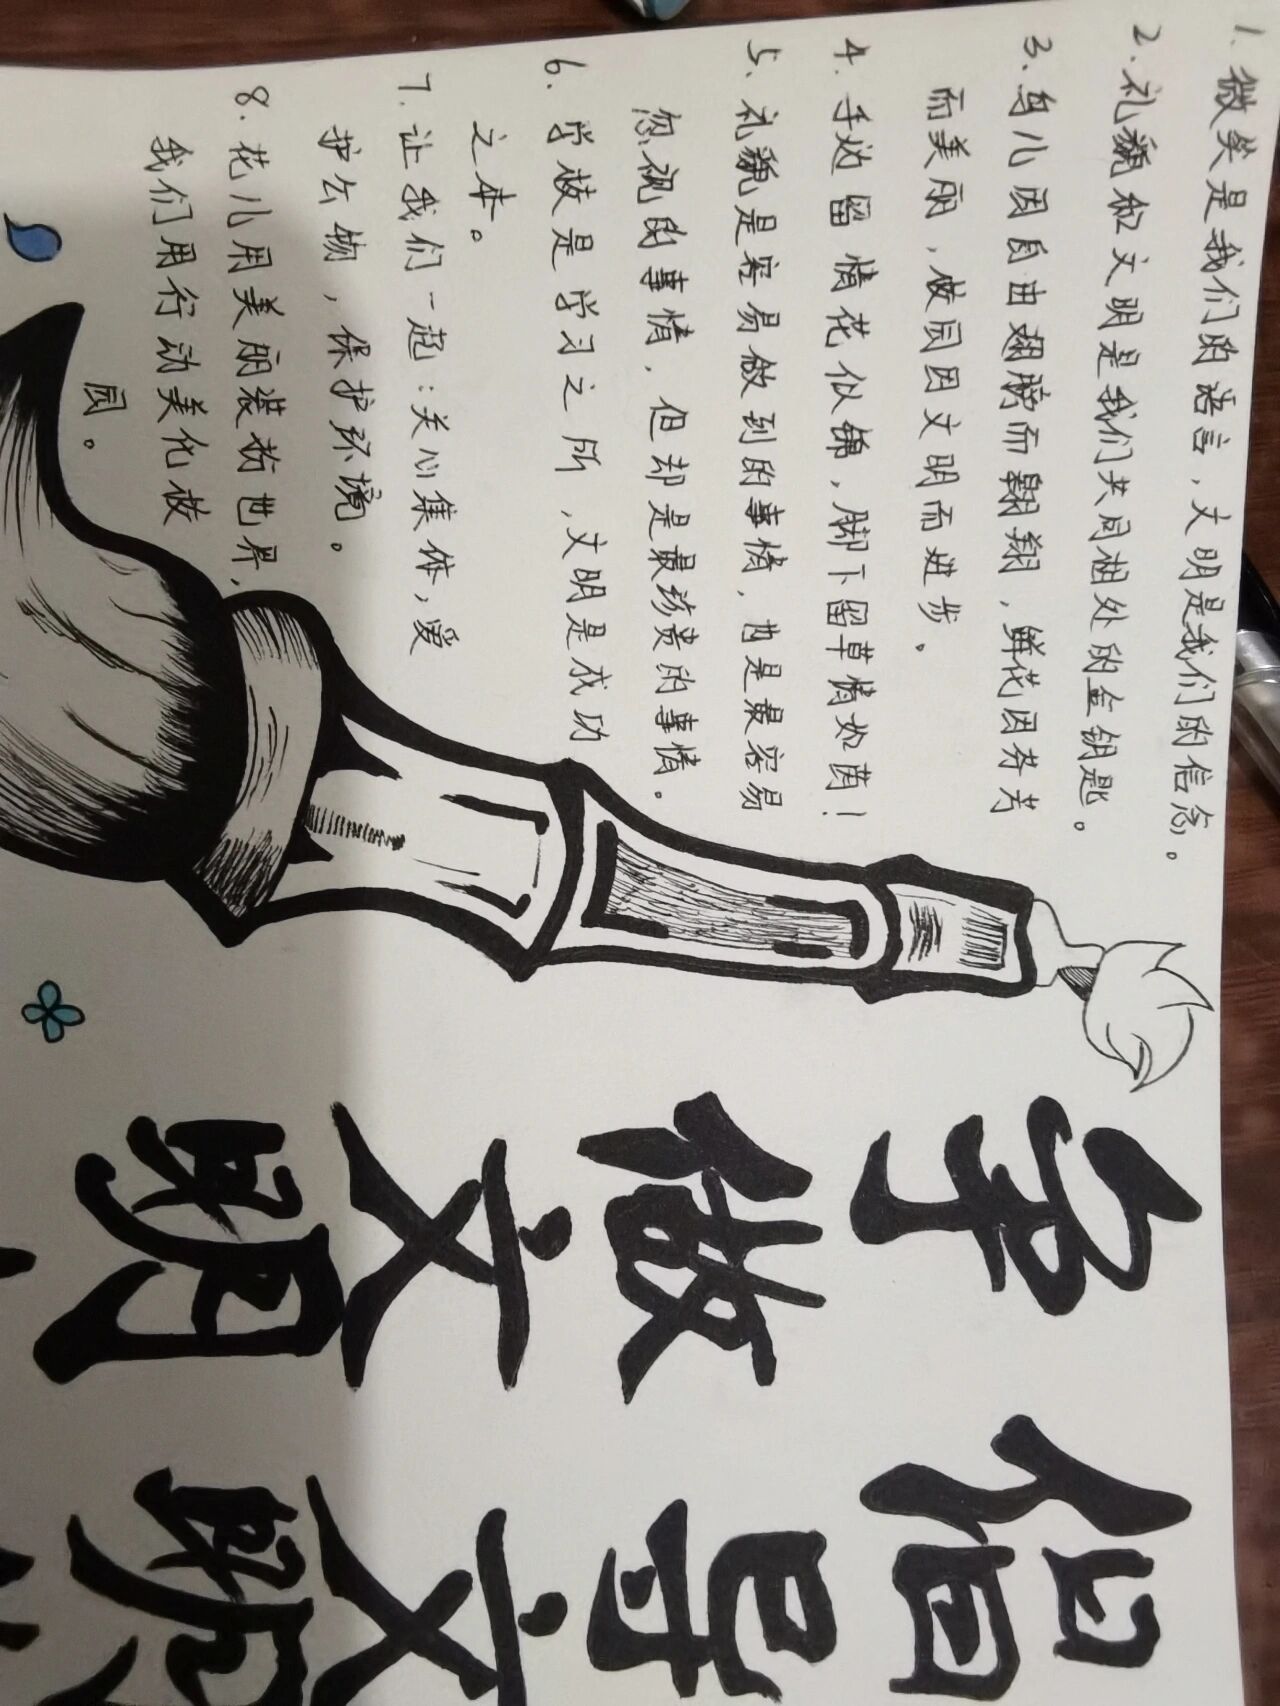 1.微笑是我们的语言，文明是我们的信念。
2.礼貌和文明是我们共同相处的金钥匙。
3.鸟儿因自由翅膀而翱翔，鲜花因芬芳
而美丽，校园因文明而进步。
4.手边留情花似锦，脚下留草情如茵！
5.礼貌是容易做到的事情，也是最容易
忽视的事情，但却是最珍贵的事情。
6.学校是学习之所，文明是成功
之本。
7.让我们一起：关心集体，爱
护公物，保护环境。
8.花儿用美丽装扮世界，
我们用行动美化校
园。
争做文明
倡导文明